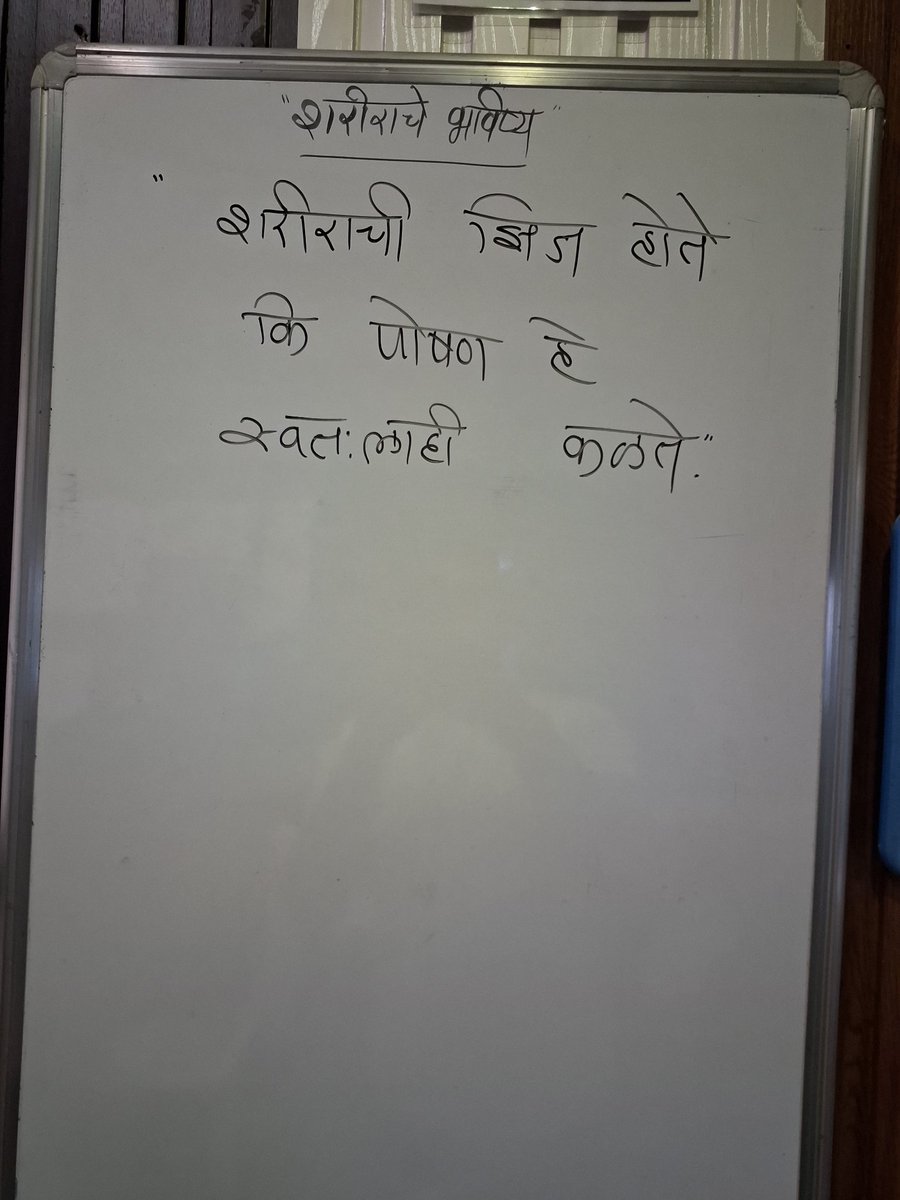 "शरीराचे भविष्य"
"शरीराची झिज होते
कि पोषण हे
स्वत:लाही कळते."